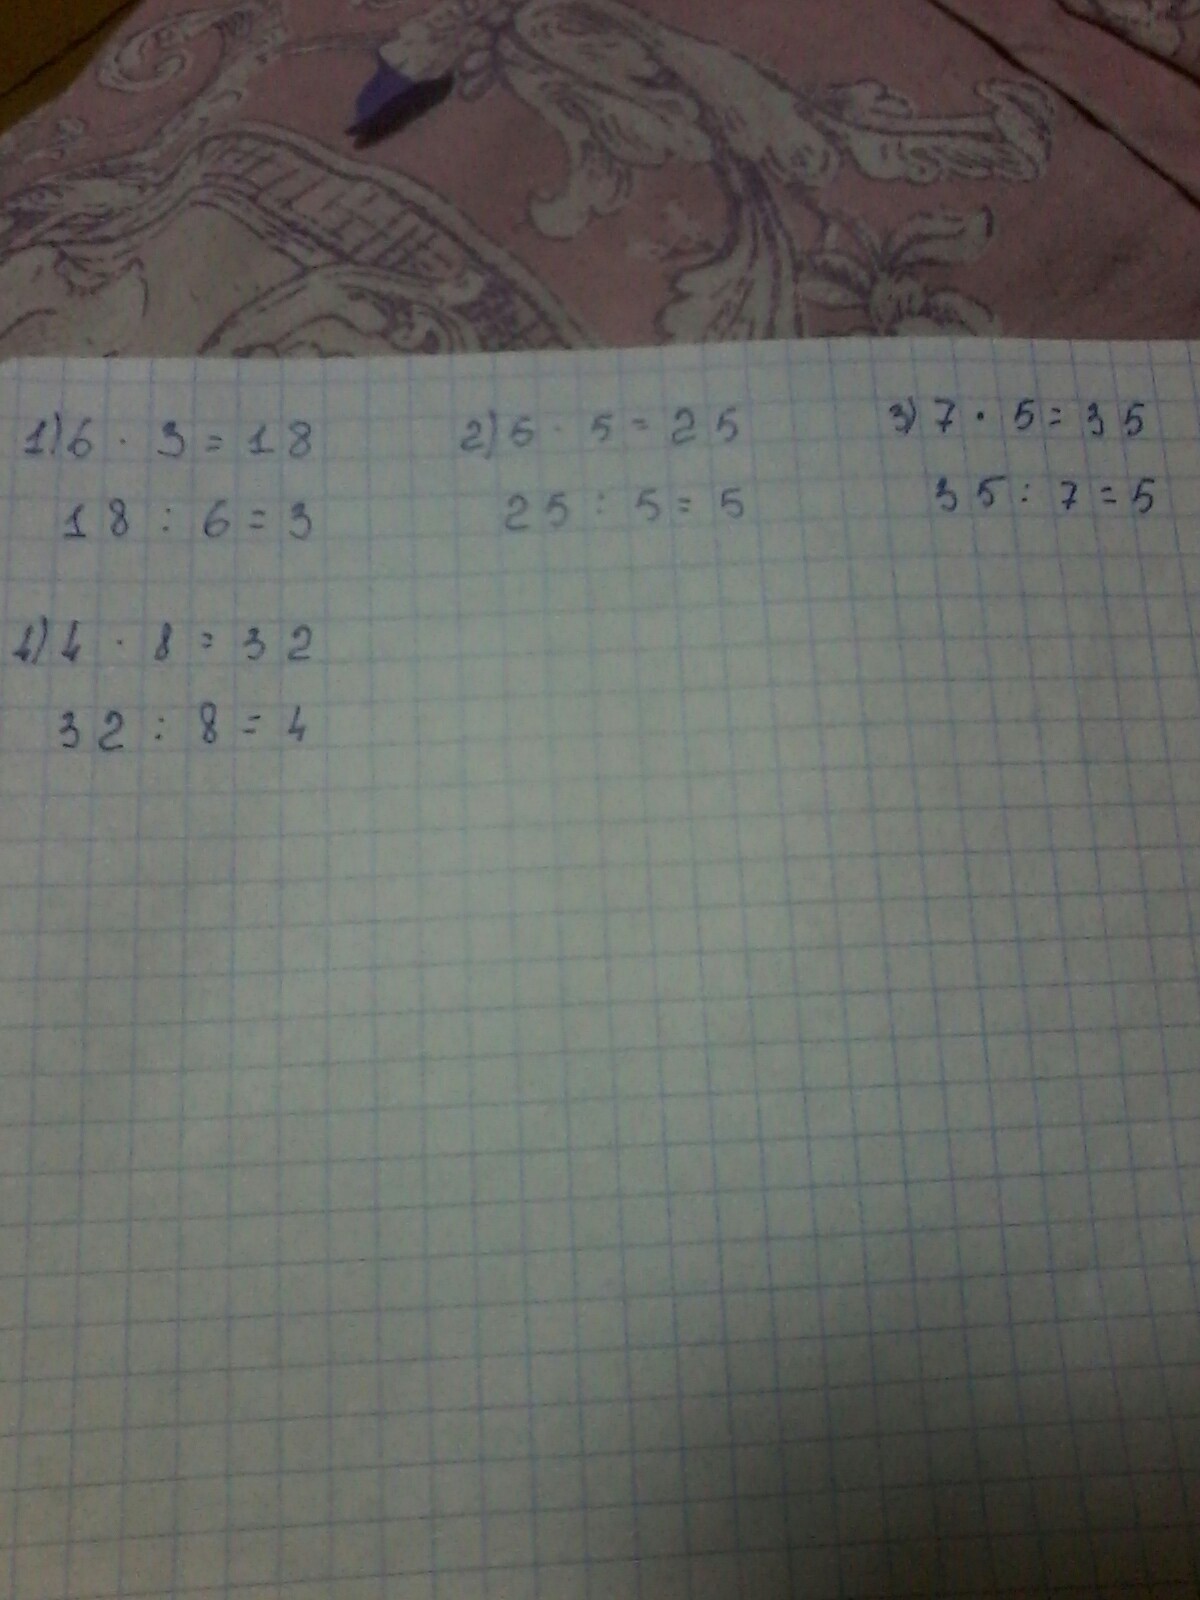 1) 6 · 3 = 18
18 : 6 = 3
2) 6 · 5 = 25
25 : 5 = 5
3) 7 · 5 = 35
35 : 7 = 5
4) 4 · 8 = 32
32 : 8 = 4